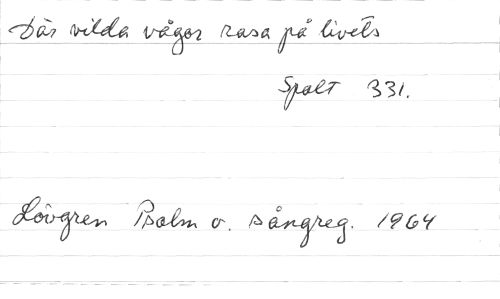 Där vilda vågor rasa på livets
Spalt 331.
Lövgren Psalm o. sångreg. 1964